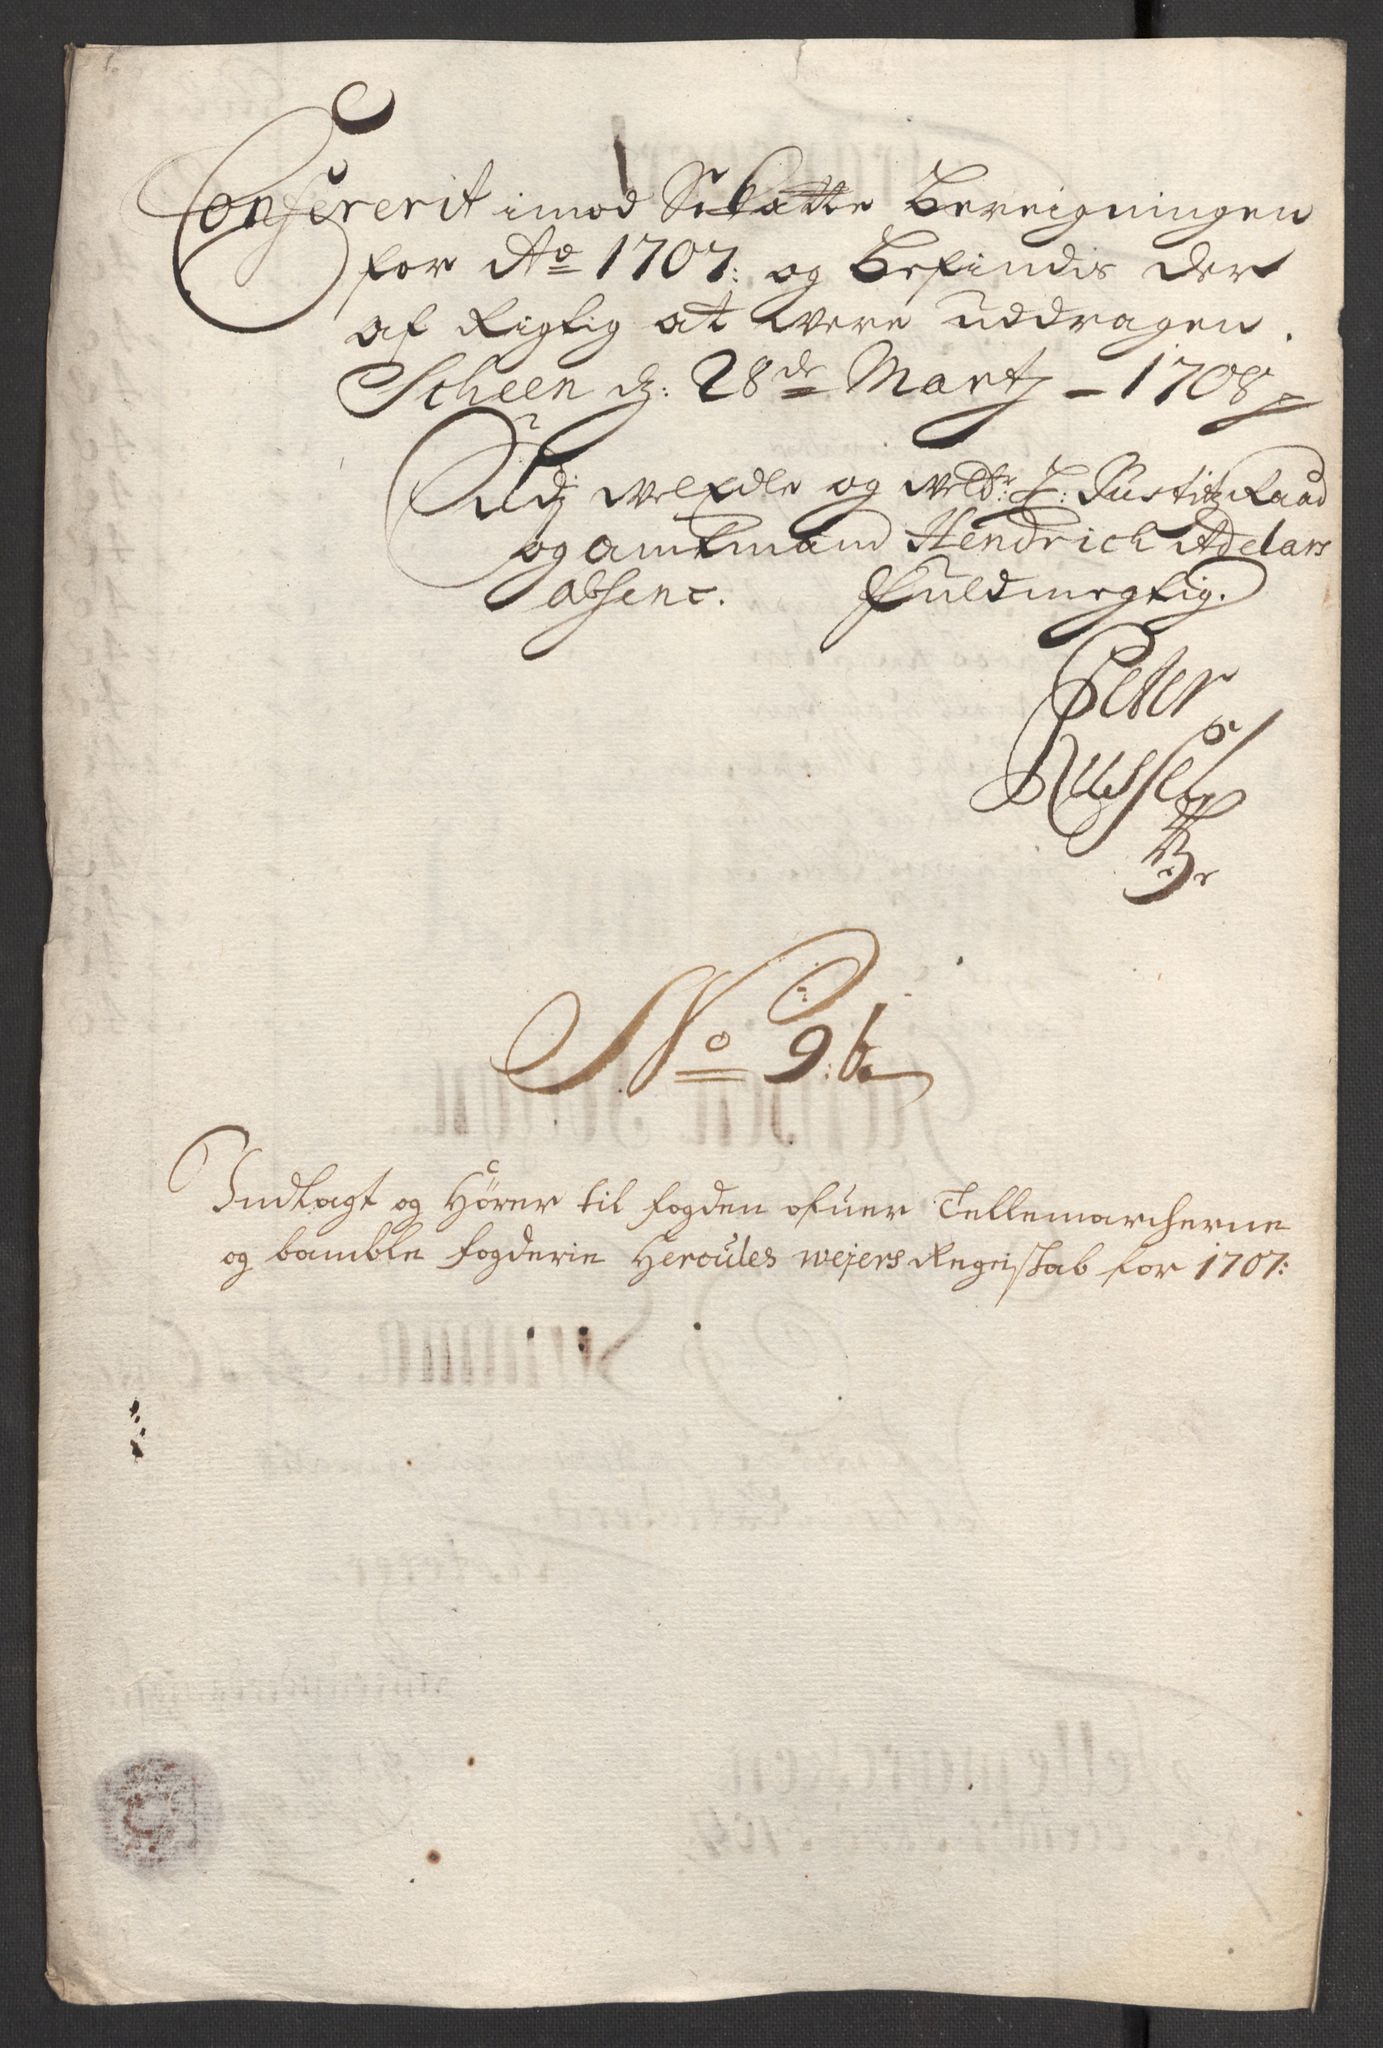 Confererit imod Schatte Bereigningen
for Ao 1707: og Befindis der
af Rigtig at were uddragen.
Scheen dj: 28de Martj – 1708
Udj welEdle og welb: H: Justitz Raad
og amtmand Hendrich Adelars
absenc. fuldmegtig.
Peter
Russel
No 9: b.
Indlagt og Hører til fogden ofuer Tellemarcherne
og bamble fogderie Hercules Wejers Regenskab for 1707: